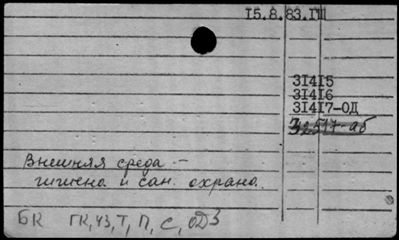 15.8.83.ГШ
31415
31416
31417-ОД
32517-аб
Внешняя среда -
гигиена и сан. охрана.
БК ГК, УЗ, Т, П, С, ОДЗ